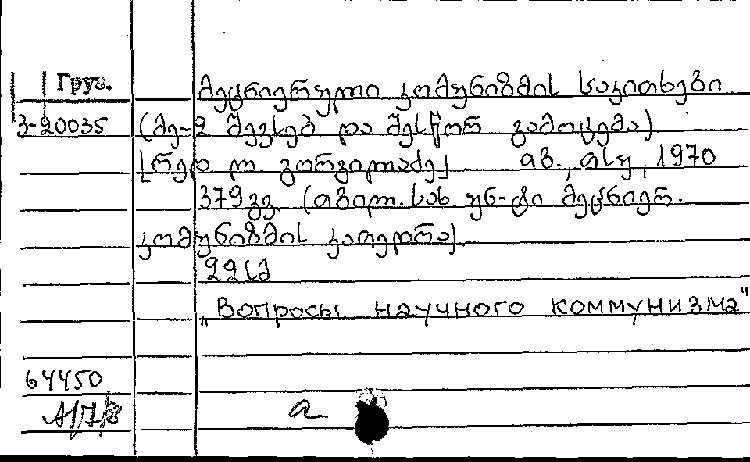 Груз.
მეცნიერული კომუნიზმის საკითხები.
3-20035 (მე-2 შევსებ და შესწორ გამოცემა)
[რედ. ო. გორგილაძე] თბ., თსუ, 1970
379 გვ. (თბილ. სახ. უნ-ტი მეცნიერ.
კომუნიზმის კათედრა).
„Вопросы научного коммунизма"
64450
а